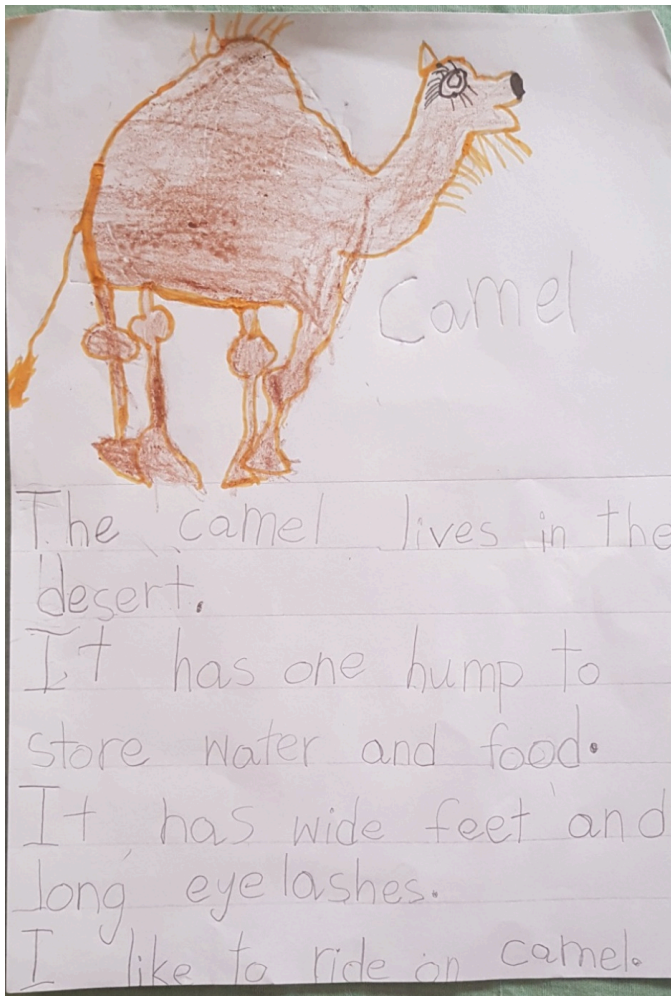 Camel
The camel lives in the
desert.
It has one hump to
store water and food.
It has wide feet and
long eyelashes.
I like to ride on camel.